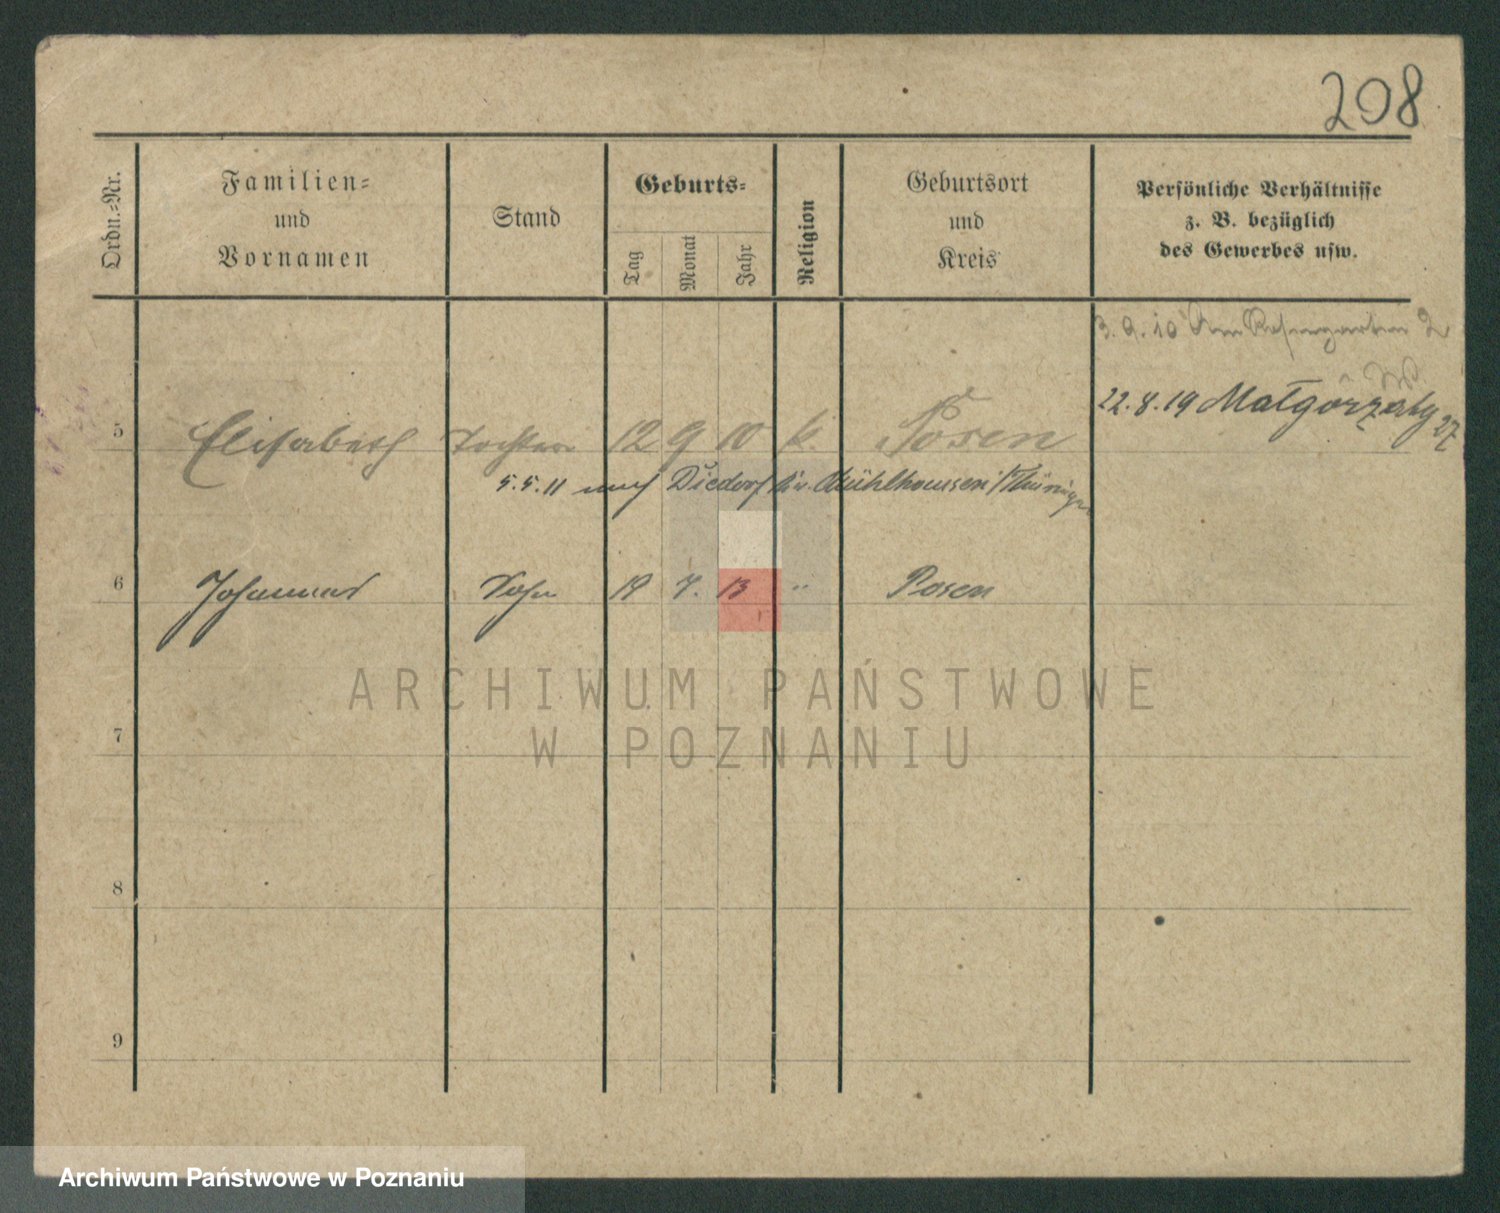 208
Ordn.=Nr.
Familien=
und
Vornamen
Stand
Geburts=
Tag
Monat
Jahr
Religion
Geburtsort
und
Kreis
Persönliche Verhältnisse
z. B. bezüglich
des Gewerbes usw.
3.9.10 Am Rosengarten 2
22.8.19 Małgorzaty 27
5 Elisabeth Tochter 12 9 10 k. Posen
5.5.11 nach Diedorf Kr. Mühlhausen i/Thüringen
6 Johannes Sohn 19 7. 13 " Posen
7
8
9
ARCHIWUM PAŃSTWOWE
W POZNANIU
Archiwum Państwowe w Poznaniu